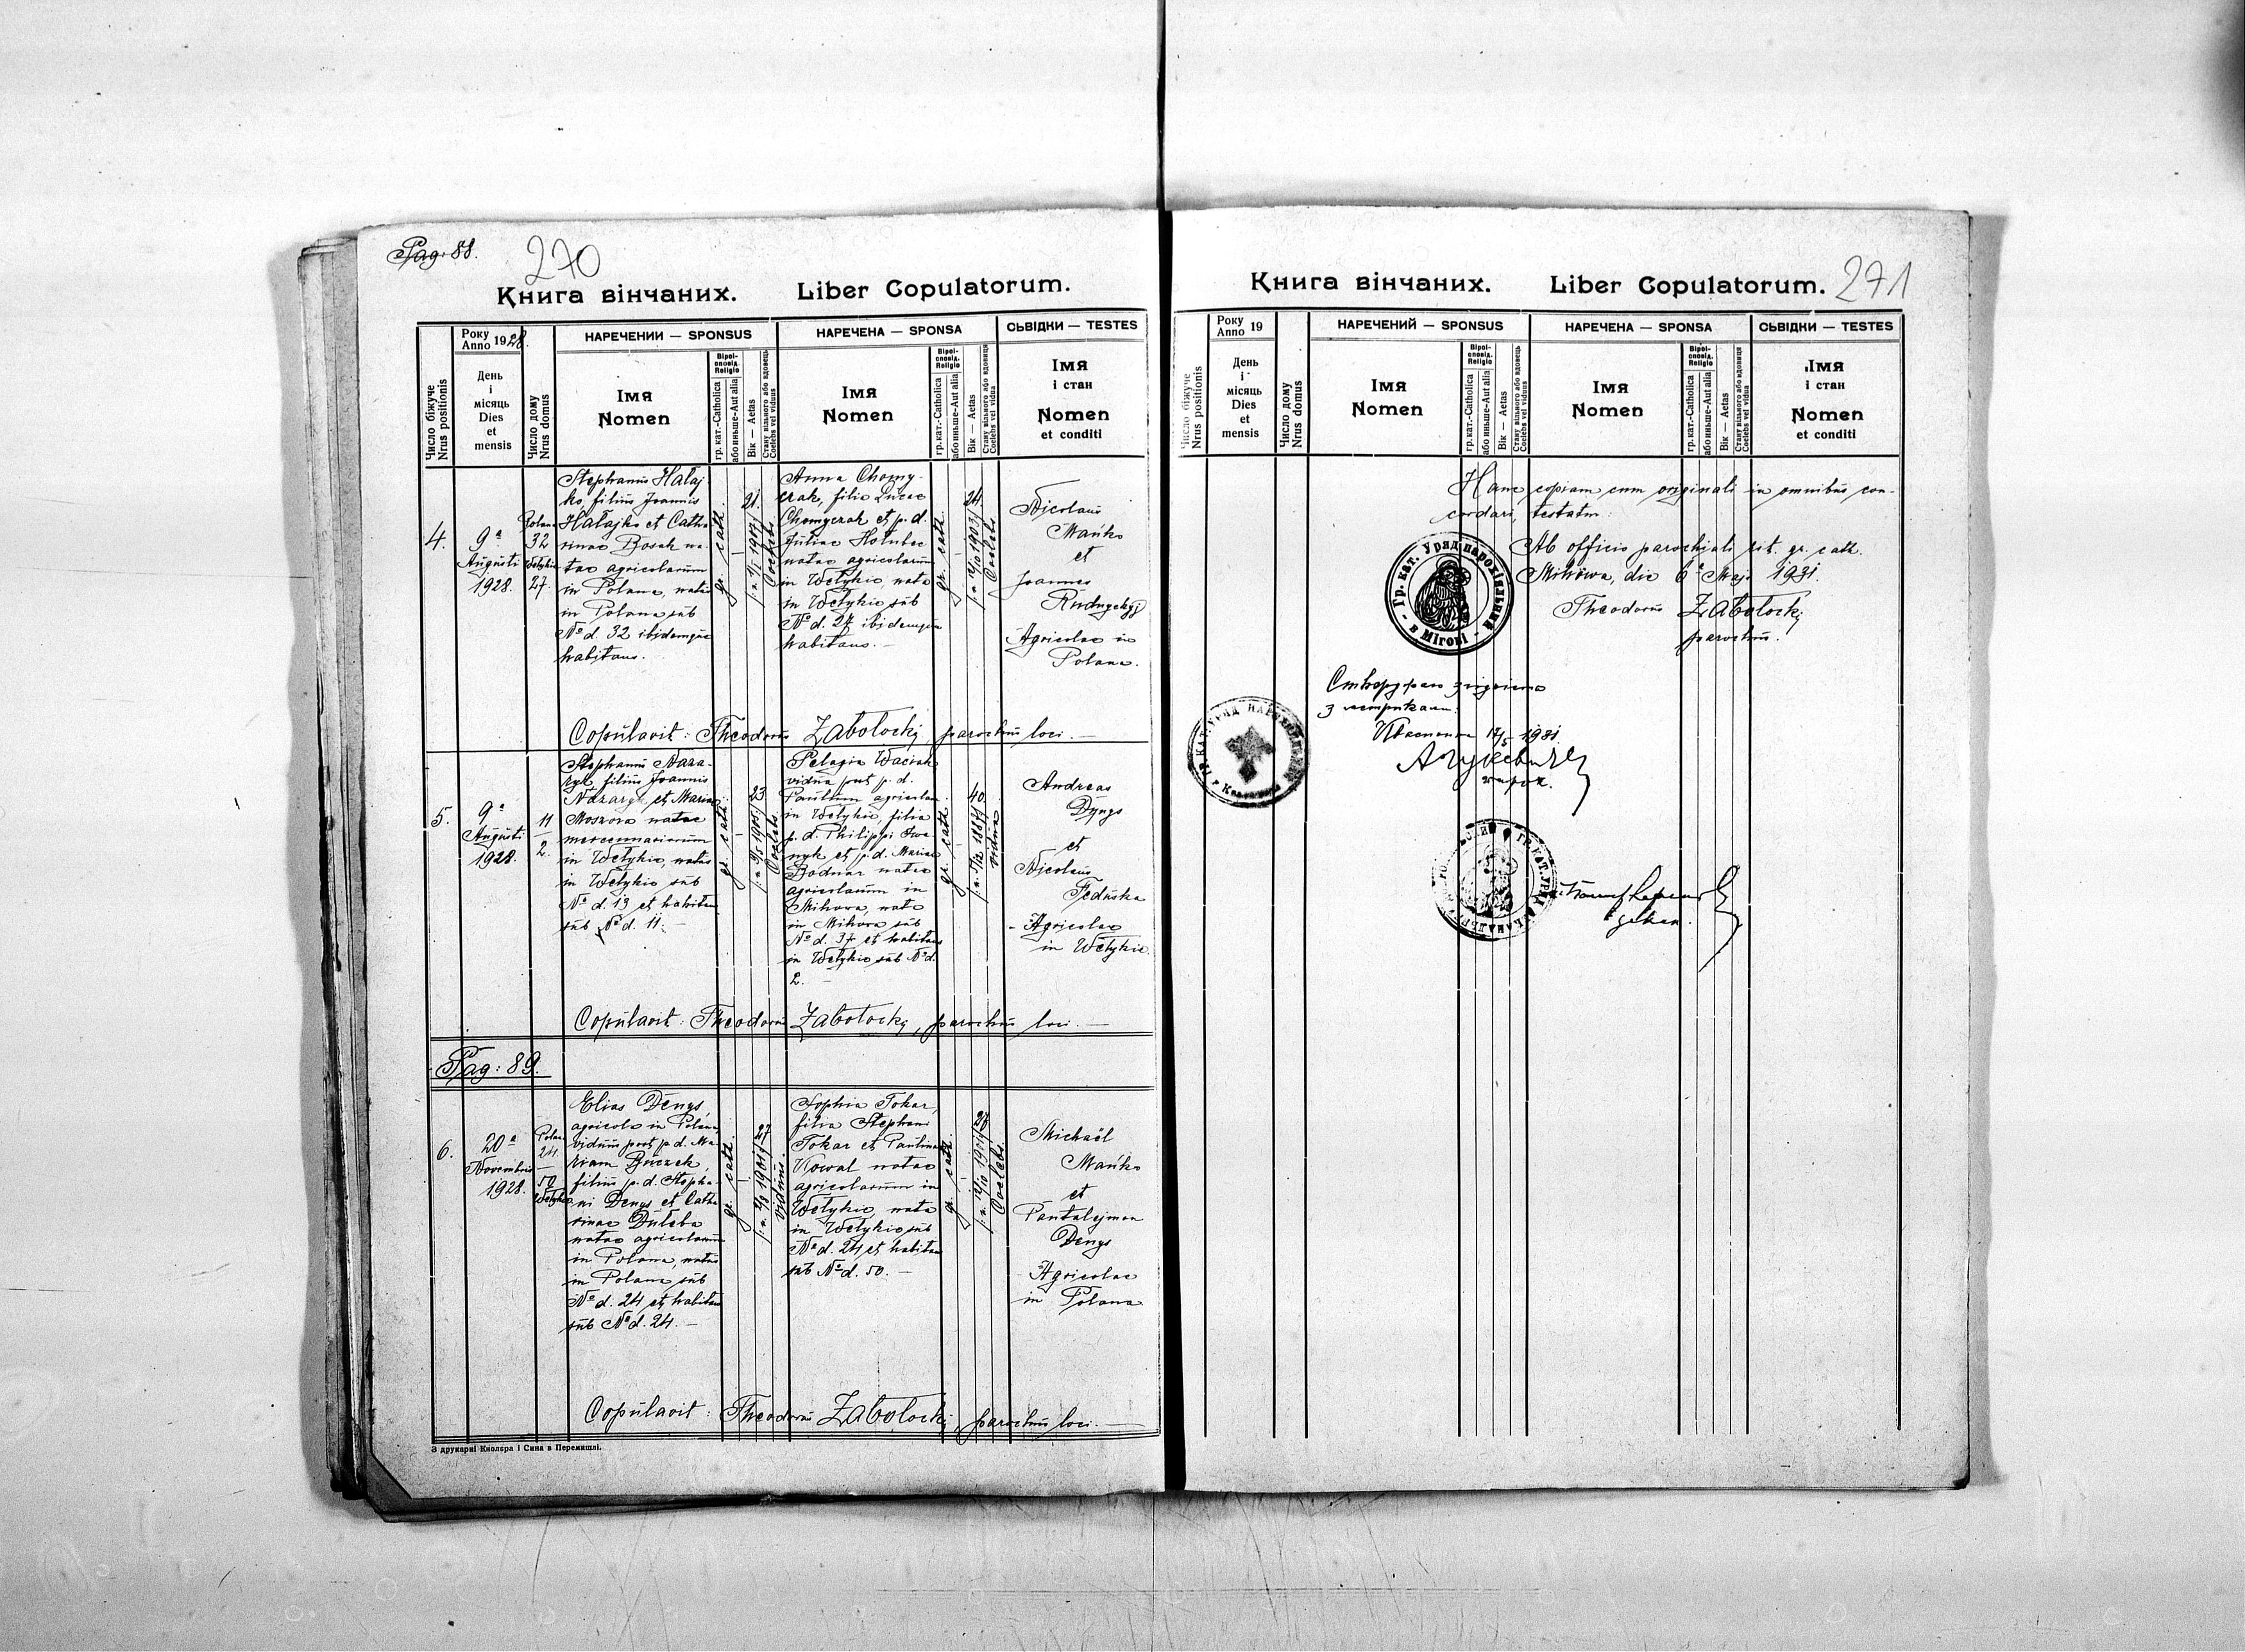 Pag: 88.
270
Книга вінчаних. Liber Copulatorum.
Число біжуче
Nrus positionis
Року
Anno 1928.
День
і
місяць
Dies
et
mensis
Число дому
Nrus domus
НАРЕЧЕНИЙ — SPONSUS
Імя
Nomen
Віроі-
сповід.
Religio
гр. кат.-Catholica
або иньше-Aut alia
Вік — Aetas
Стану вільного або вдовець
Coelebs vel viduus
НАРЕЧЕНА — SPONSA
Імя
Nomen
Віроі-
сповід.
Religio
гр. кат.-Catholica
або иньше-Aut alia
Вік — Aetas
Стану вільного або вдовиця
Coelebs vel vidua
СЬВІДКИ — TESTES
Імя
і стан
Nomen
et conditi
4.
9ª
Augusti
1928.
Polana
32
Wetykie
27.
Stephanus Hałaj
ko, filius Joannis
Hałajko et Catha
rinae Bosak na-
tae agricolarum
in Polana, natus
in Polana sub
Nº d. 32 ibidemque
habitans.
gr. cath.
21.
Coelebs
Anna Chomy-
czak, filia Lucae
Chomyczak et p. d.
Juliae Holubec
natae agricolarum
in Wetykie, nata
in Wetykie sub
Nº d. 27 ibidemque
habitans. —
gr. cath.
24.
Coelebs
Nicolaus
Mańko
et
Joannes
Rudnyckyj
Agricolae in
Polana.
Copulavit: Theodorus Zabolockij, parochus loci. —
5.
9ª
Augusti
1928.
11
—
2.
Stephanus Naza-
ryk filius Joannis
Nazaryk et Mariae
Moszora natae
mercennariorum
in Wetykie, natus
in Wetykie sub
Nº d. 13 et habitans
sub Nº d. 11. —
gr. cath.
23
Coelebs
Pelagia Waciak
vidua post p. d.
Paulum agricolam
in Wetykie, filia
p. d. Philippi Iwa-
nyk et p. d. Mariae
Bodnar natae
agricolarum in
Mikova, nata
in Mikova sub
Nº d. 37 et habitans
in Wetykie sub Nº d.
2. —
gr. cath.
40.
vidua
Andreas
Dyngs
et
Nicolaus
Feduska
- Agricolae
in Wetykie.
Copulavit: Theodorus Zabolockij, parochus loci. —
Pag: 89.
6.
20ª
Novembris
1928.
Polana
24.
—
50
Wetykie
Elias Denys,
agricola in Polana,
viduus post p. d. Ma-
riam Buczek,
filius p. d. Stepha-
ni Denys et Catha-
rinae Duleba
natae agricolarum
in Polana, natus
in Polana sub
Nº d. 24 et habitans
sub Nº d. 24. —
gr. cath.
27
viduus.
Sophia Tokar,
filia Stephani
Tokar et Paulinae
Kowal natae
agricolarum in
Wetykie, nata
in Wetykie sub
Nº d. 24 et habitans
sub Nº d. 50. —
gr. cath.
Coelebs.
Michaël
Mańko
et
Pantalejmon
Denys
Agricolae
in Polana
Copulavit: Theodorus Zabolockij, parochus loci. —
З друкарні Кнолєра і Сина в Перемишлі.
271
Книга вінчаних. Liber Copulatorum.
Число біжуче
Nrus positionis
Року
Anno 19
День
і
місяць
Dies
et
mensis
Число дому
Nrus domus
НАРЕЧЕНИЙ — SPONSUS
Імя
Nomen
Віроі-
сповід.
Religio
гр. кат.-Catholica
або иньше-Aut alia
Вік — Aetas
Стану вільного або вдовець
Coelebs vel viduus
НАРЕЧЕНА — SPONSA
Імя
Nomen
Віроі-
сповід.
Religio
гр. кат.-Catholica
або иньше-Aut alia
Вік — Aetas
Стану вільного або вдовиця
Coelebs vel vidua
СЬВІДКИ — TESTES
Імя
і стан
Nomen
et conditi
Hanc copiam cum originali in omnibus con-
cordari, testatur:
Ab officio parochiali rit. gr. cath.
Mikowa, die 6ª Maji 1931.
Theodorus Zabolockij
parochus.
Гр. кат. Уряд парохіяльний
в Мігові
з метриками.
1931
парох.